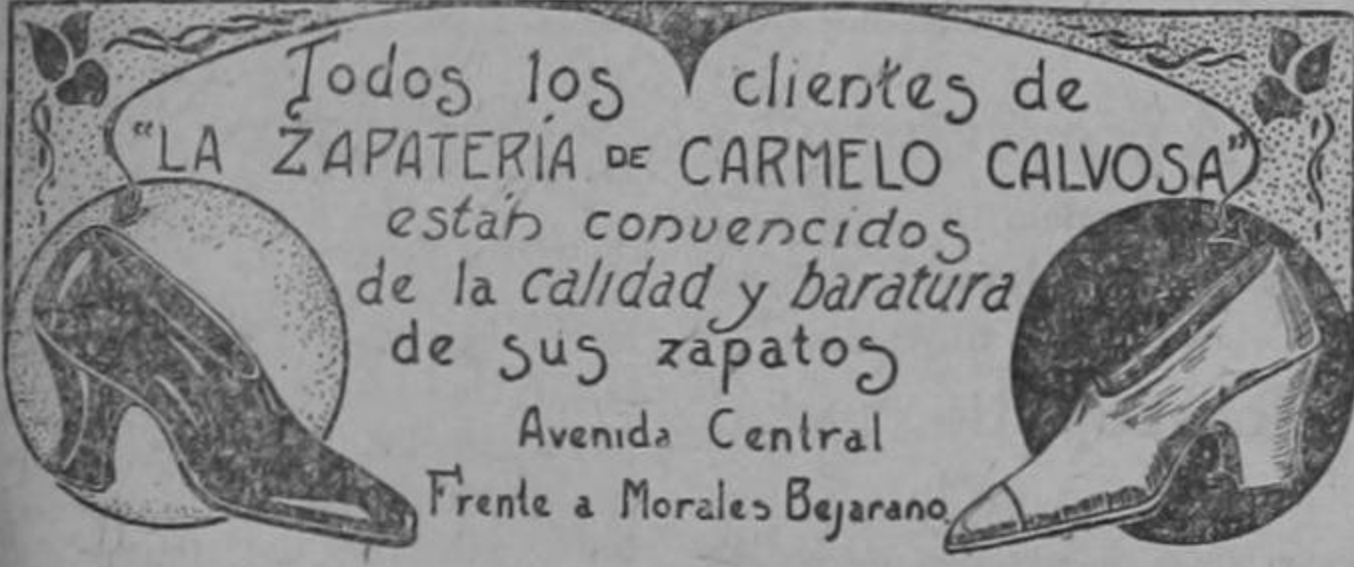 Todos los clientes de
"LA ZAPATERÍA DE CARMELO CALVOSA"
están convencidos
de la calidad y baratura
de sus zapatos
Avenida Central
Frente a Morales Bejarano.